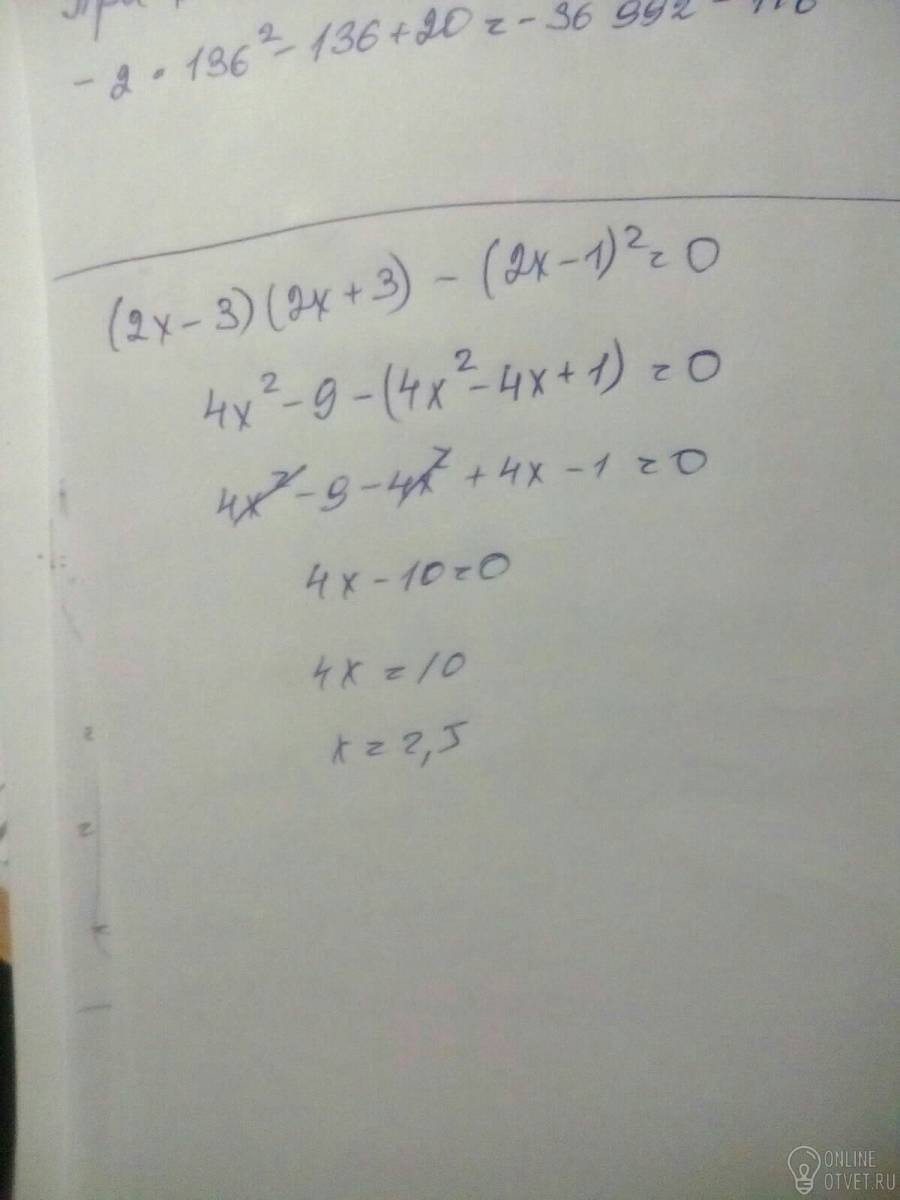 При
- 2 • 136² - 136 + 20 = - 36 992 - 116
(2x - 3)(2x + 3) - (2x - 1)² = 0
4x² - 9 - (4x² - 4x + 1) = 0
4x² - 9 - 4x² + 4x - 1 = 0
4x - 10 = 0
4x = 10
x = 2,5
ONLINE
OTVET.RU